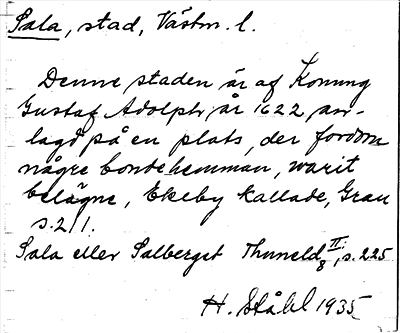 Sala, stad, Västm. l.
Denne staden är af Konung
Gustaf Adolph år 1622 an-
lagd på en plats, der fordom
någre bondehemman, warit
belägne, Ekeby kallade, Grau
s. 211.
Sala eller Salberget Thuneld II:8, s. 225
H. Ståhl 1935